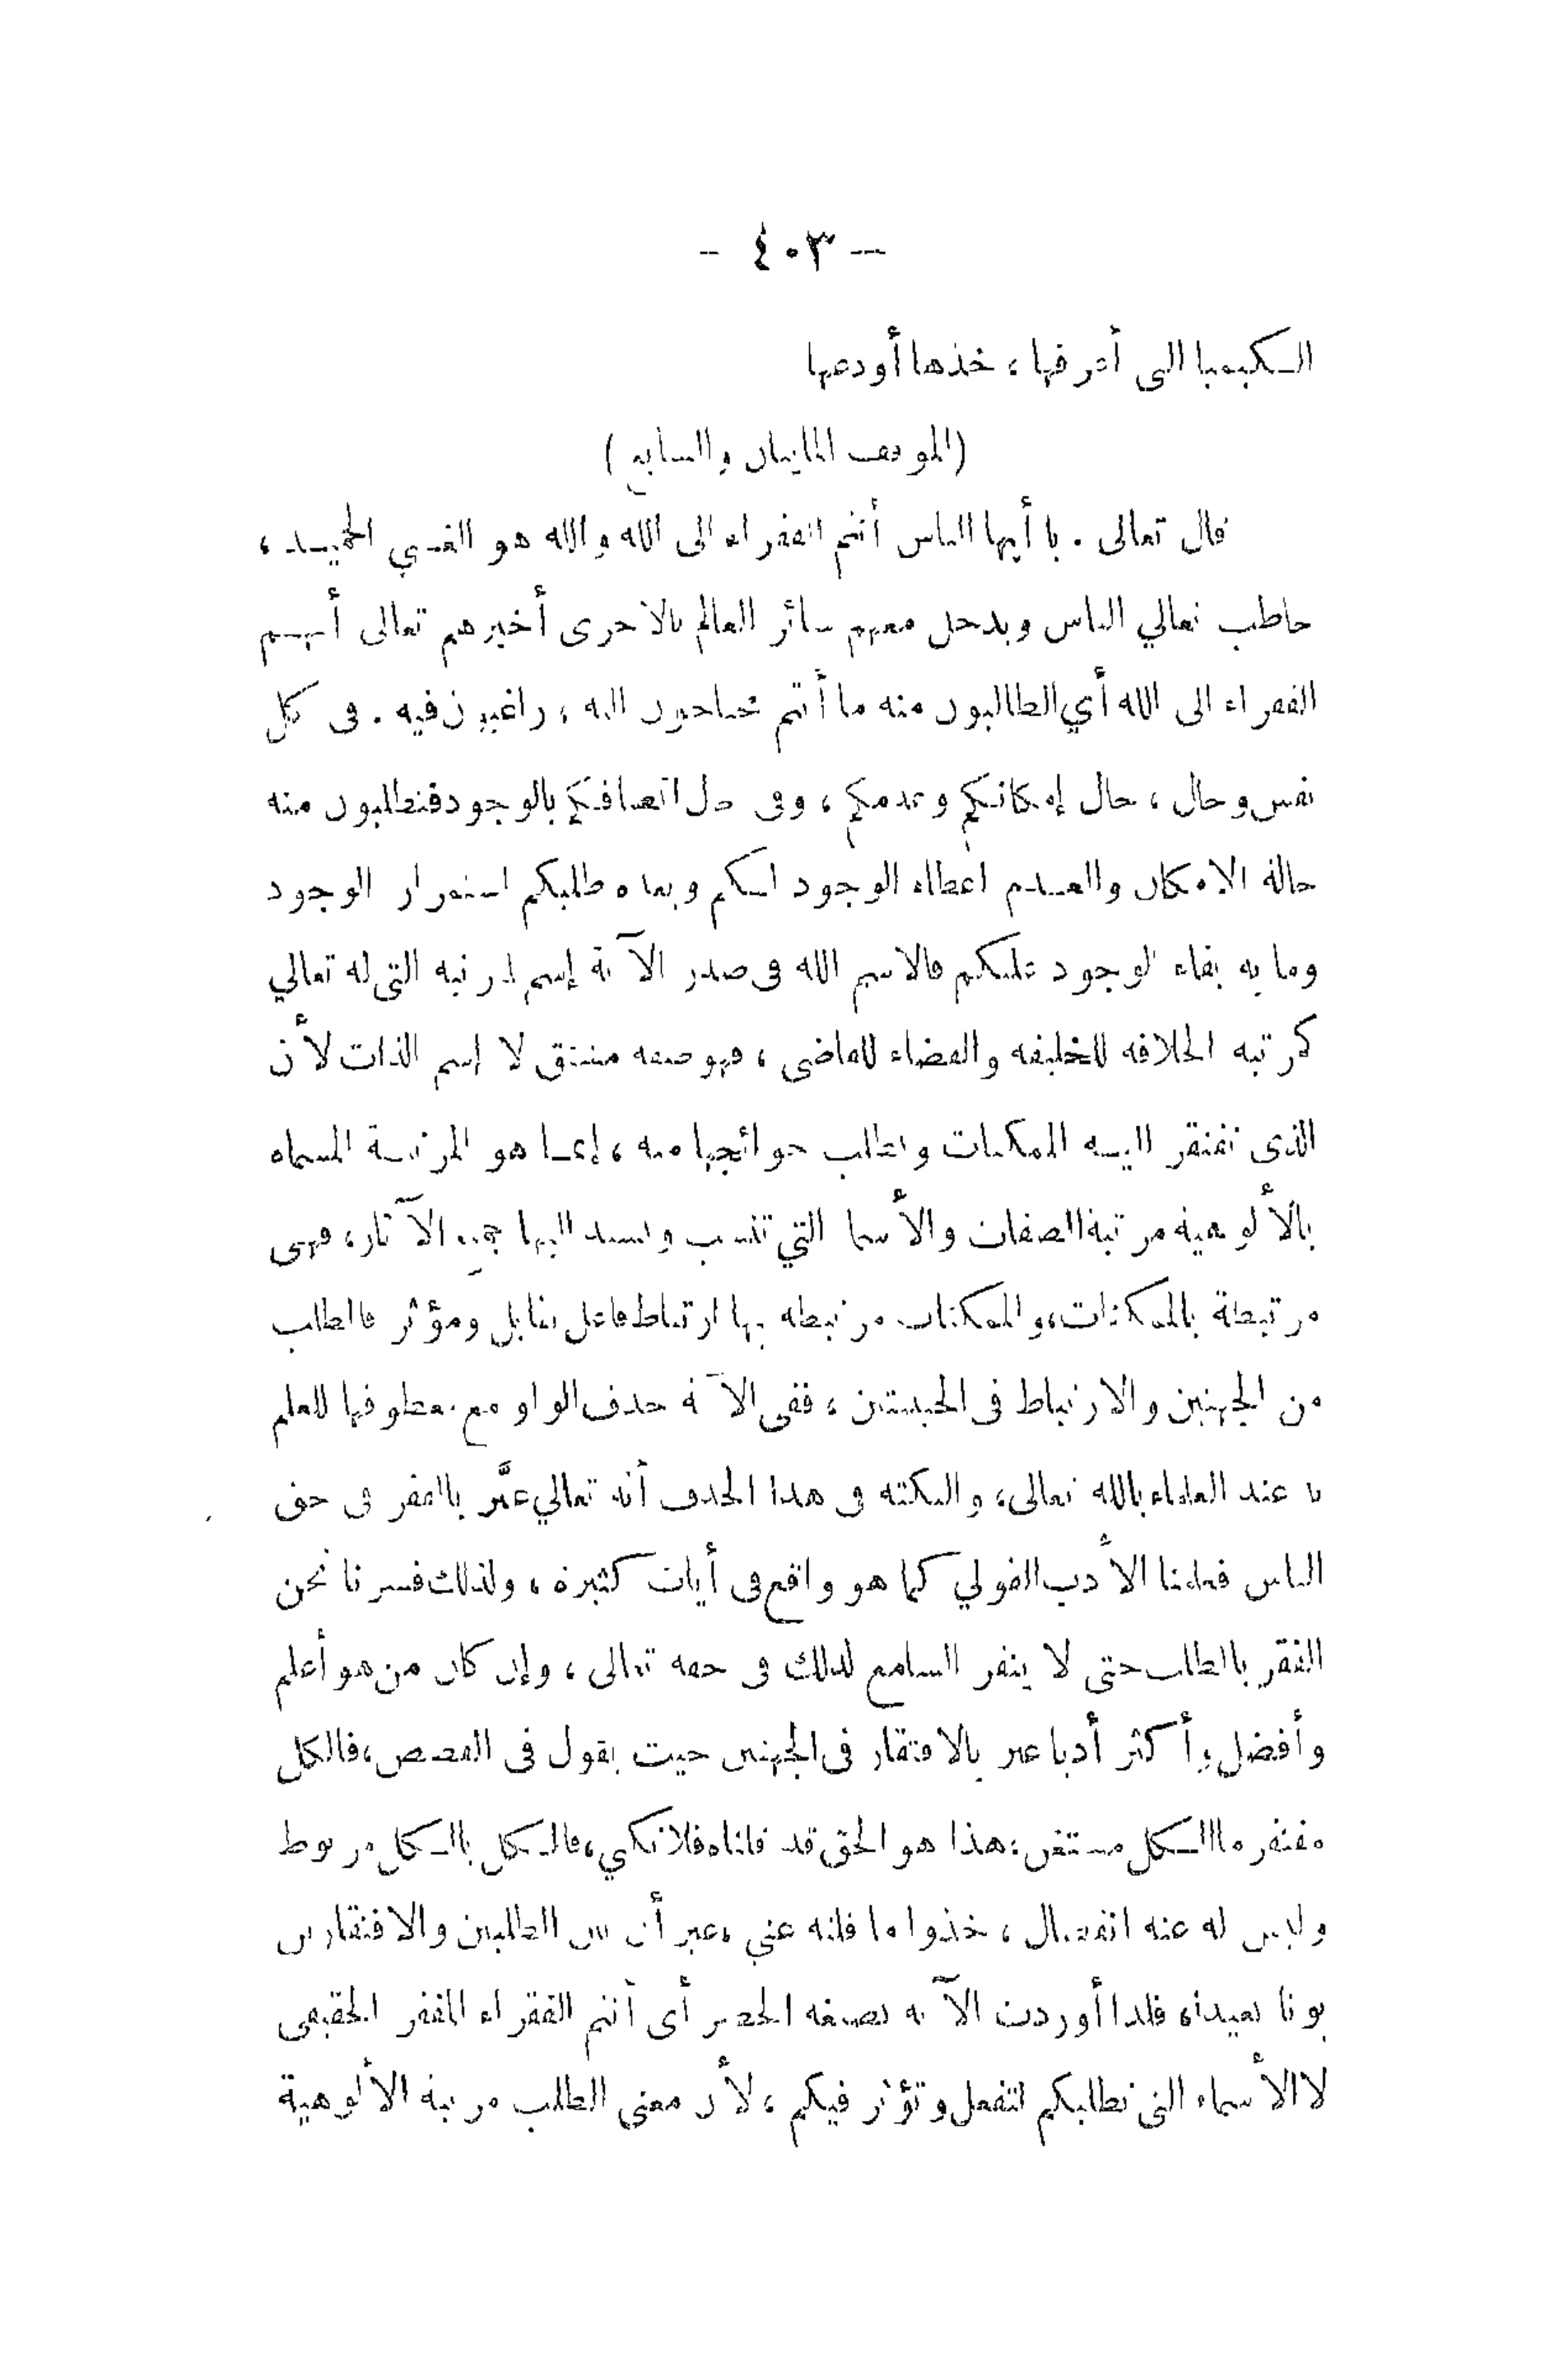 — ٤٠٣ -
الكيميا التى أعرفها، خذها أودعها
(الموقف المايتان والسابع)
قال تعالى . يا أيها الناس أنتم الفقراء الى الله والله هو الغني الحميد،
خاطب تعالي الناس ويدخل معهم سائر العالم بالاحرى أخبرهم تعالى أنهم
الفقراء الى الله أي الطالبون منه ما أنتم محتاجون اليه، راغبون فيه . فى كل
نفس وحال، حال إمكانكم وعدمكم، وفى حال اتصافكم بالوجود فتطلبون منه
حالة الامكان والعدم اعطاء الوجود لكم وبعده طلبكم استمرار الوجود
وما به بقاء الوجود عليكم فالاسم الله فى صدر الآية إسم لمرتبه التى له تعالي
كمرتبه الخلافه للخليفه والقضاء للقاضى، فهو صفه مشتق لا إسم الذات لأن
الذى تفتقر اليه الممكنات وتطلب حوائجها منه، إنما هو المرتبة المسماه
بالألوهيه مرتبة الصفات والأسما التي تنسب وتسند اليها جميع الآثار، فهى
مرتبطة بالممكنات، والممكنات مرتبطه بها ارتباط فاعل بقابل ومؤثر فالطلب
من الجهتين والارتباط فى الحيثيتين، ففى الآية حذف الواو مع معطوفها للعلم
بها عند العلماء بالله تعالى، والنكته فى هذا الحذف أنه تعالي عبَّر بالفقر فى حق
الناس فعلمنا الأدب القولي كما هو واقع فى أيات كثيرة، ولذلك فسرنا نحن
الفقر بالطلب حتى لا ينفر السامع لذلك فى حقه تعالى، وإن كان من هو أعلم
وأفضل وأكثر أدبا عبر بالافتقار فى الجهتين حيث يقول فى الفصوص، فالكل
مفتقر ما الكل مستغن، هذا هو الحق قد قلناه فلا نكني، فالكل بالكل مربوط
وليس له عنه انفصال، خذوا ما قلته عني، غير أن بين الطلبين والافتقارين
بونا بعيدا، فلذا أوردت الآيه بصيغه الحصر أى أنتم الفقراء الفقر الحقيقى
لا الأسماء التى تطالبكم لتفعل وتؤثر فيكم، لأن معنى الطلب مرتبة الألوهية